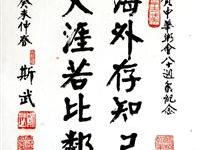 會八十週年紀念
海外存知己
天涯若比鄰
癸未仲春
斯武